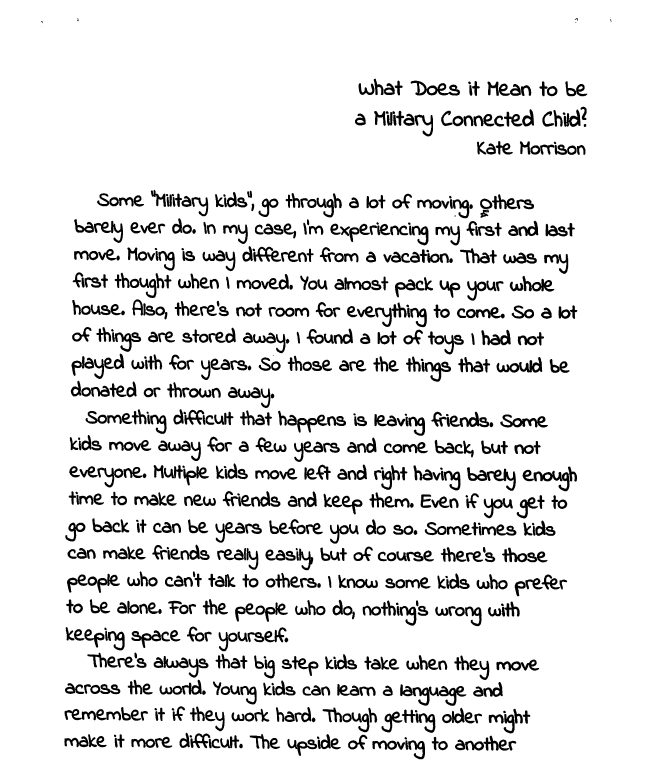 What Does it Mean to be
a Military Connected Child?
Kate Morrison
Some "Military kids", go through a lot of moving. Others
barely ever do. In my case, I'm experiencing my first and last
move. Moving is way different from a vacation. That was my
first thought when I moved. You almost pack up your whole
house. Also, there's not room for everything to come. So a lot
of things are stored away. I found a lot of toys I had not
played with for years. So those are the things that would be
donated or thrown away.
Something difficult that happens is leaving friends. Some
kids move away for a few years and come back, but not
everyone. Multiple kids move left and right having barely enough
time to make new friends and keep them. Even if you get to
go back it can be years before you do so. Sometimes kids
can make friends really easily, but of course there's those
people who can't talk to others. I know some kids who prefer
to be alone. For the people who do, nothing's wrong with
keeping space for yourself.
There's always that big step kids take when they move
across the world. Young kids can learn a language and
remember it if they work hard. Though getting older might
make it more difficult. The upside of moving to another